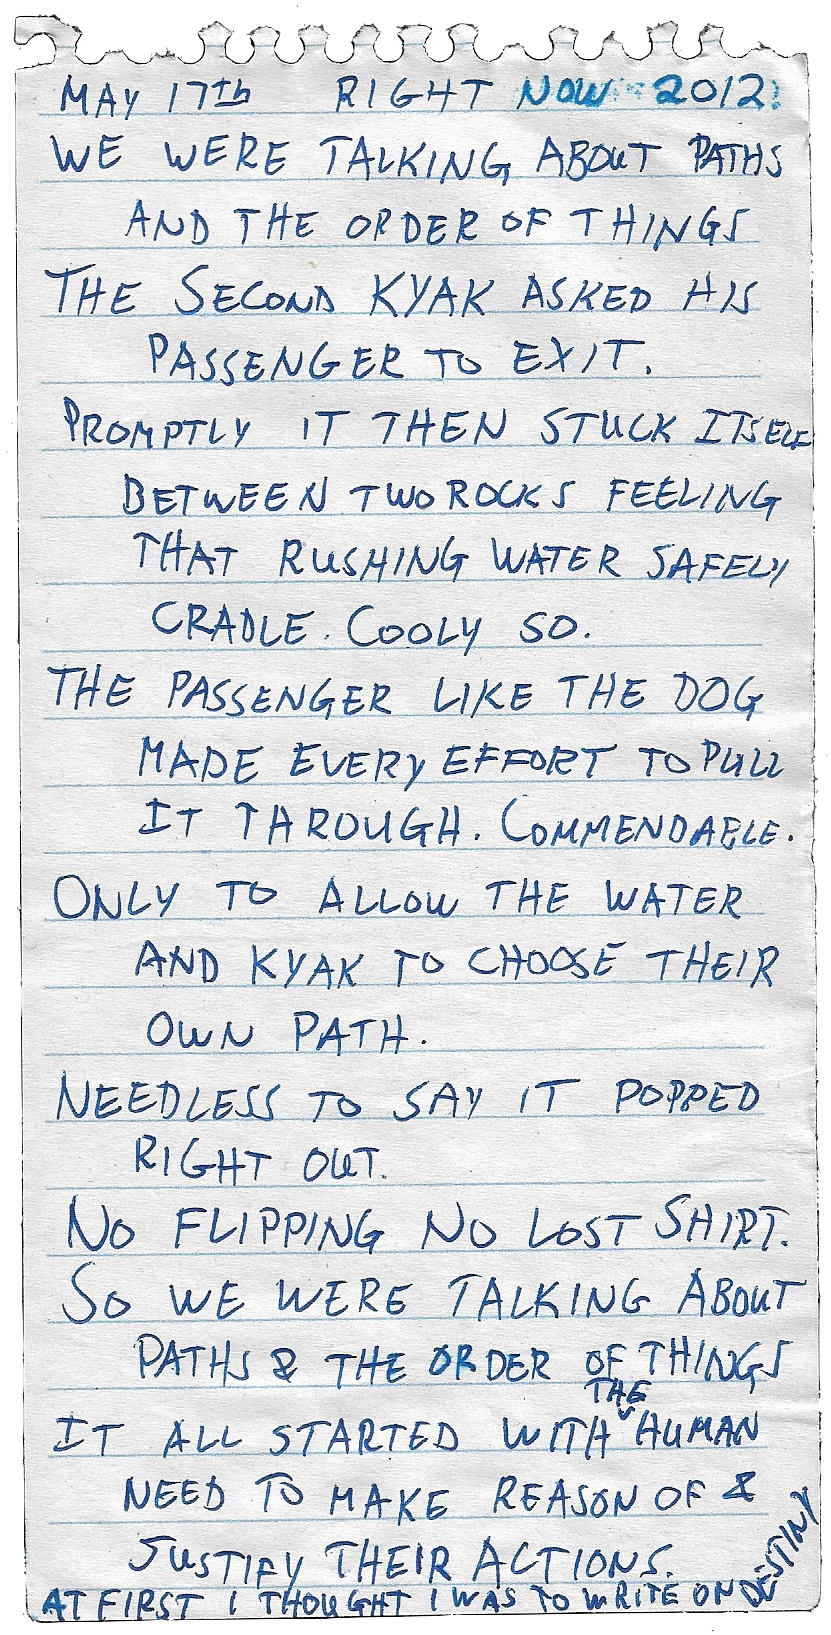 MAY 17th RIGHT NOW 2012
WE WERE TALKING ABOUT PATHS
AND THE ORDER OF THINGS
THE SECOND KYAK ASKED HIS
PASSENGER TO EXIT.
PROMPTLY IT THEN STUCK ITSELF
BETWEEN TWO ROCKS FEELING
THAT RUSHING WATER SAFELY
CRADLE. COOLY SO.
THE PASSENGER LIKE THE DOG
MADE EVERY EFFORT TO PULL
IT THROUGH. COMMENDABLE.
ONLY TO ALLOW THE WATER
AND KYAK TO CHOOSE THEIR
OWN PATH.
NEEDLESS TO SAY IT POPPED
RIGHT OUT.
NO FLIPPING NO LOST SHIRT.
SO WE WERE TALKING ABOUT
PATHS & THE ORDER OF THINGS
IT ALL STARTED WITH THE HUMAN
NEED TO MAKE REASON OF &
JUSTIFY THEIR ACTIONS.
AT FIRST I THOUGHT I WAS TO WRITE ON DESTINY